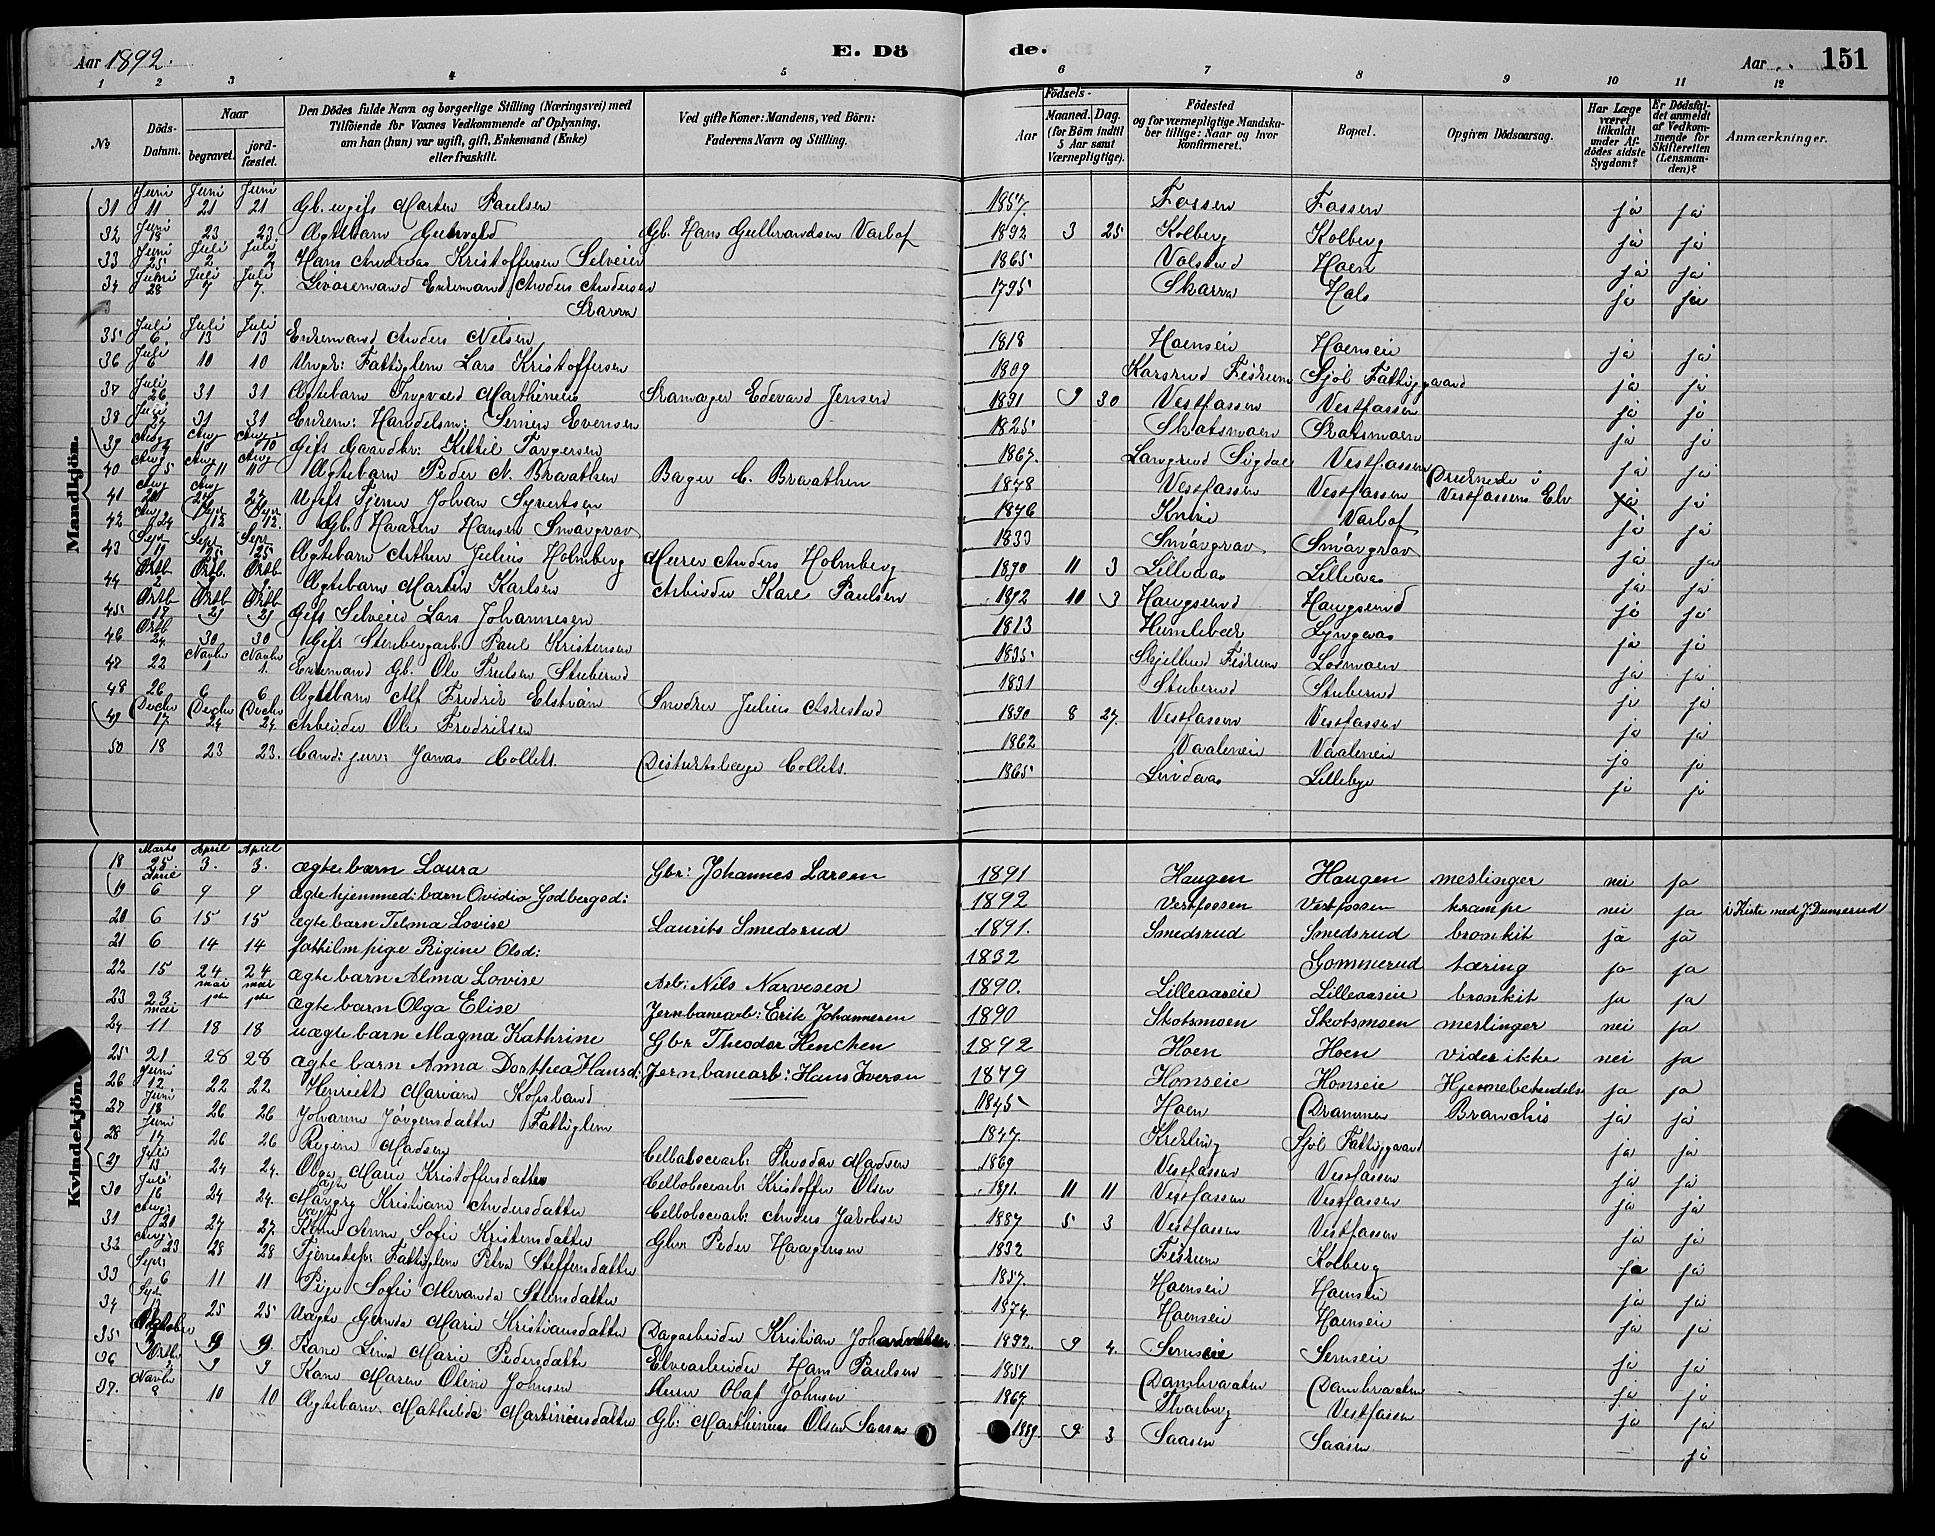 Aar 1892. E. Dö de. Aar 151
1 2 3 4 5 6 7 8 9 10 11 12
№ Döds-Datum. Naar begravet. jordfæstet. Den Dödes fulde Navn og borgerlige Stilling (Næringsvei) med Tilföiende for Voxnes Vedkommende af Oplysning, om han (hun) var ugift, gift, Enkemand (Enke) eller fraskilt. Ved gifte Koner: Mandens, ved Börn: Faderens Navn og Stilling. Födsels- Aar Maaned. Dag. (for Börn indtil 5 Aar samt Værnepligtige). Födested og for værnepligtige Mandskaber tillige: Naar og hvor konfirmeret. Bopæl. Opgiven Dödsaarsag. Har Læge været tilkaldt under Afdödes sidste Sygdom? Er Dödsfaldet anmeldt af Vedkommende for Skifteretten (Lensmanden)? Anmærkninger.
Mandkjön.
31 Juni 11 Juni 21 Juni 21 Gb. ugift Marten Paulsen 1857. Fossen Fossen ja ja
32 Juni 18 23 23 Ægtebarn Gunvald Gb. Hans Gulbrandsen Varlof 1892 3 25 Kolberg Kolberg ja ja
33 Juni 25 Juli 2 Juli 2 Hans Andreas Kristoffersen Selveier 1865 Valstad Hoen ja ja
34 Juni 28 Juli 7 Juli 7. Enkemand Anders Andersen 1795 Skarra Hals ja ja
Skarra
35 Juli 6 Juli 13 Juli 13 Enkemand Anders Nilsen 1818 Hoenseie Hoenseie ja ja
36 Juli 6 10 10 Fattiglem Lars Kristoffersen 1809 Karsrud Fiskum Sjöl Fattiggaard ja ja
37 Juli 26 31 31 Ægtebarn Ingvald Marthinius Edevard Jensen 1891 9 30 Vestfossen Vestfossen ja ja
38 Juli 27 31 31 Enkem: Handelsm: Simen Evensen 1825 Skotsmoen Skotsmoen ja ja
39 Aug 4 Aug 10 Aug 10 Gift Gaardbr: Kittil Torgersen 1867. Langrud Sigdal Vestfossen ja ja
40 Aug 5 Aug 11 Aug 11 Ægtebarn Peder N. Braathen Bager C. Braathen 1878 Vestfossen Vestfossen Druknede i Vestfossens Elv ja ja
41 Aug 20 Aug 24 24 Ugift Tjener Johan Syvertsen 1876 Knive Varlof ja ja
42 Aug 24 Septr 12 Septr 12. Gb. Haaken Hansen Smörgrav 1833 Smörgrav Smörgrav ja ja
43 Sept 19 Sept 25 Sept 25 Ægtebarn Arthur Julius Holmberg Murer Anders Holmberg 1890 11 3 Lilleaas Lilleaas ja ja
44 Oktb 2 Oktb. Oktb Ægtebarn Marten Karlsen Arbeider Karl Paulsen 1892 10 3 Haugsund Haugsund ja ja
45 Oktb 17 Oktb 29 Oktb 29 Gift Selveier Lars Johannesen 1813 Humlebæk Lyngaas ja ja
46 Oktb 24 30 30 Gift Paul Kristensen 1835 Fiskum Losmoen ja ja
47 22 Novbr 1 Novbr 1. Enkemand Gb. Ole Truelsen Stuberud 1831 Stuberud Stuberud ja ja
48 26 6 6 Ægtebarn Alf Fredrik Elström Snedker Julius 1890 8 27. Vestfossen Vestfossen ja ja
49 Decbr 17 Decbr 24 Decbr 24 Arbeider Ole Fredriksen 1862 Vaaleneie Vaaleneie ja ja
50 18 23 23. Cand: jur: Jonas Collett. Distriktslæge Collett. 1865 Lindaas Lillebye ja ja
Kvindekjön.
18 Marts 25 April 3. April 3. ægte barn Laura Gbr: Johannes Larsen 1891 Haugen Haugen meslinger nei ja
19 April 6 9 9 ægte hjemmed: barn Ovidia Godbergsd: 1892 Vestfossen Vestfossen krampe nei ja i Kiste med J. Dunserud
20 6 15 15 ægte barn Telma Lovise Laurits Smedsrud 1891. Smedsrud Smedsrud bronkit ja ja
21 6 14 14 fattilm pige Rigine Olsd: 1832 Gommerud tæring ja ja
22 15 24. 24 ægte barn Alma Lovise Arb: Nils Narvesen 1890. Lilleaaseie Lilleaaseie bronkit ja ja
23 23. mai 1ste mai 1ste ægte barn Olga Elise Jernbanearb: Erik Johannesen 1890 Skotsmoen Skotsmoen meslinger nei ja
24 mai 11 18 18 uægte barn Magna Kathrine Gbr Theodor Henchen 1892 Hoen Hoen vides ikke nei ja
25 21 28 28 ægte barn Anna Dorthea Hansd: Jernbanearb: Hans Iversen 1879 Honseie Honseie ja ja
26 Juni 12. 22 22 Henriette Mariane Kopsland 1845 Hoen Drammen ja ja
27 Juni 18 26 26 Johanne Jörgensdatter Fattiglem 1847. Krekling Sjöl Fattiggaard ja ja
28 Juni 17 26 26 Regine Madsen Cellulosearb. Theodor Madsen 1869 Vestfossen Vestfossen ja ja
29 Juli 13 24 24. Olga Marie Kristoffersdatter Cellulosearb: Kristoffer Olsen 1891. 11 11 Vestfossen Vestfossen ja ja
30 Juli 16 24 24. Margry Kristiane Andersdatter Cellulosearb: Anders Jakobsen 1887 5 3 Vestfossen Vestfossen ja ja
31 Aug: 20 27 27. Kone Anne Sofie Kristensdatter Gbr Peder Haagensen 1832 Fiskum Kolberg ja ja
32 Aug: 23 28 28 Fattiglem Petra Steffensdatter 1857. Hoenseie Hoenseie ja ja
33 Sept: 6 11 11 Pige Sofie Meranda Steensdatter 1874 Hoenseie Hoenseie ja ja
34 Sept 13 25 25 Uægte Gunda Marie Kristiansdatter Dagarbeider Kristian 1892. 9 4. Semseie Semseie ja ja
35 Oktober 2 9 9. Kone Lina Marie Pedersdatter Elvearbeider Hans Paulsen 1851 Dambraaten Dambraaten ja ja
36 Oktb 4 9 9 Kone Maren Oline Johnsen Murer Olaf Johnsen 1867. Vestfossen ja ja
37. Novbr 2 10 10 Ægtebarn Mathilda Martiniusdatter Gb: Marthinius Olsen Saasen 1889. 9 3 Saasen Saasen — ja